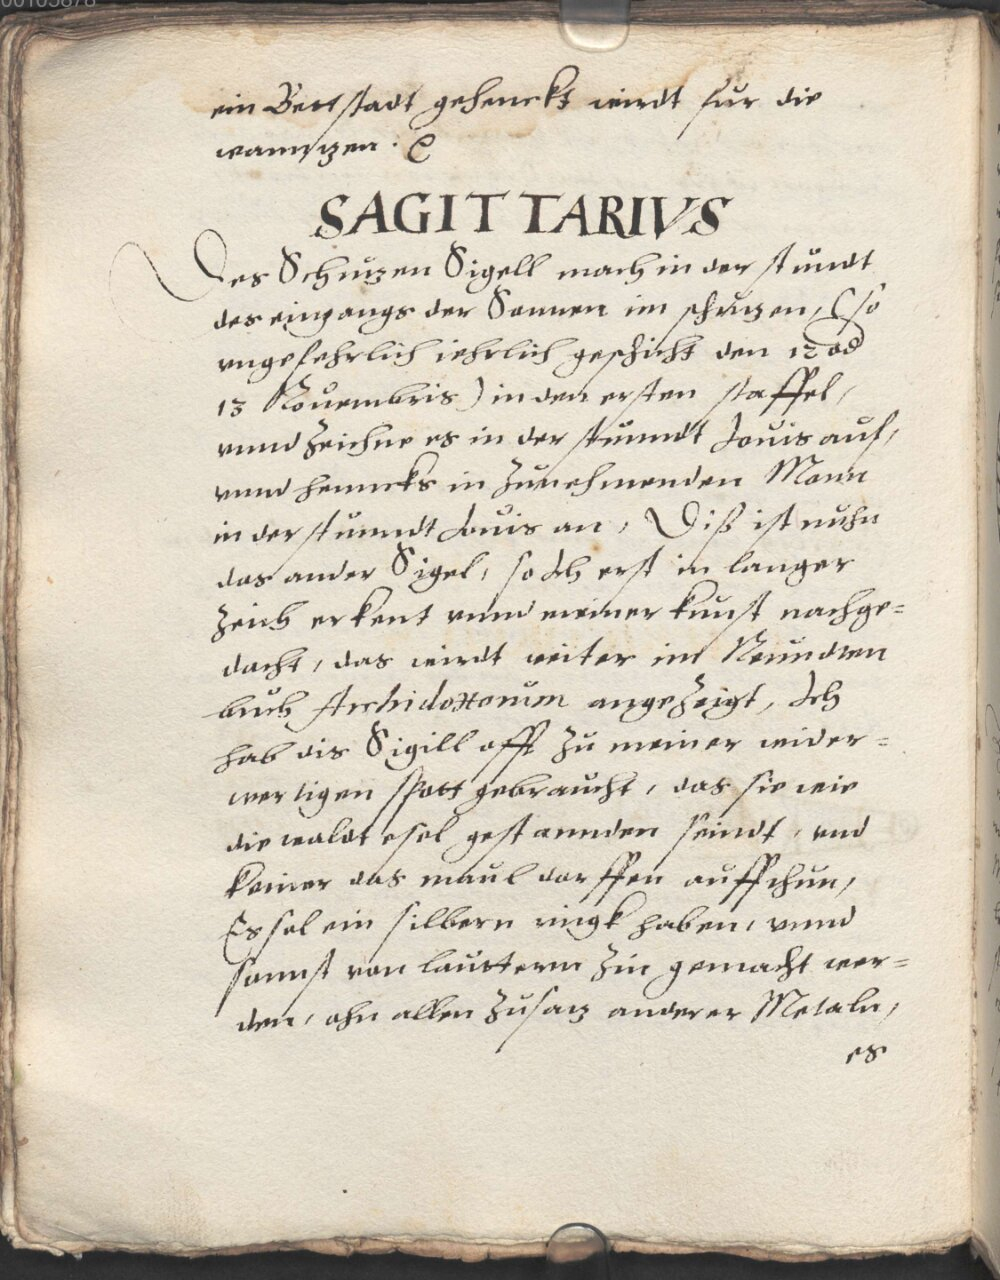 ein Bettstadt gehenckt wirdt für die
wanntzen.
SAGITTARIVS
Des Schützen Sigell mach in der stundt
des eingangs der Sonnen im schützen, (so
vngefehrlich iehrlich geschicht den 12 od
13 Nouembris) in den ersten staffel,
vnnd zeichne es in der stunndt Jouis auf,
vnnd henncks in zunehmenden Monn
in der stunndt Jouis an, Diß ist nuhn
das ander Sigel, so Ich erst in langer
Zeith erkent vnnd meiner kunst nachge=
dacht, das wirdt weiter im Neundten
buch Archidoxorum angezeigt, Ich
hab dis Sigill offt zu meiner wider=
wertigen spott gebraucht, das sie wie
die waldt esel gestannden seindt, vnd
keiner das maul dorffen auffthun,
Es sol ein silbern ringk haben, vnnd
sonnst von lautterm Zin gemacht wer=
den, ohn allen Zusatz anderer Metaln,
es